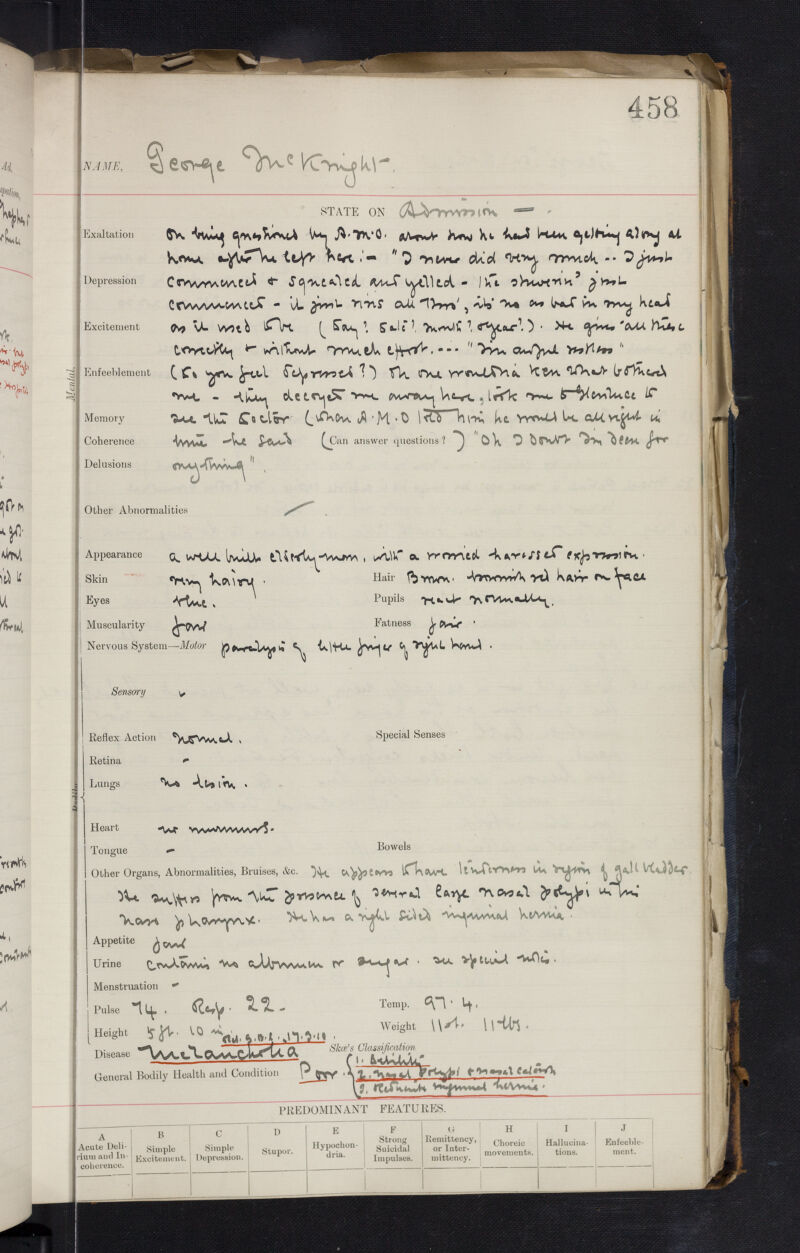 458
NAME, George McKnight.
STATE ON Admission —
Exaltation On being questioned by A.M.O. about how he had been getting along at
home after he left here :- "I never did very much -- I just
Depression Commenced & squealed and yelled - the shiverin' just
commenced - it just rins all thro', it's no as bad in my head
Excitement as it used to be (Day? Date? month? year?). He gives all these
correctly & without much effort. --- "I'm awful restless"
Enfeeblement (Do you feel depressed?) Oh one wouldna ken what bothered
me - they decoyed me away here, took me to Glenluce to
Memory see the Doctor (When A.M.O told him he would be all right in
Coherence time he said (Can answer questions?) "Oh I doubt I'm deen for
Delusions onything".
Other Abnormalities
Appearance a well built elderly man, with a worried harassed expression.
Skin very hairy. Hair Brown. brownish red hair on face
Eyes blue. Pupils react normally.
Muscularity fair Fatness fair.
Nervous System—Motor paralysis of little finger of right hand.
Sensory
Reflex Action Normal. Special Senses
Retina -
Lungs no lesion.
Heart no murmurs.
Tongue - Bowels
Other Organs, Abnormalities, Bruises, &c. He appears to have tenderness in region of gall bladder.
He suffers from the presence of several large nasal polypi in his
naso pharynx. He has a right sided inguinal hernia.
Appetite fair
Urine Contains no albumen or sugar. see special notes.
Menstruation -
Pulse 74. Resp. 22 - Temp. 97.4.
Height 5 ft. 10 in Weight 11st. 11 lbs.
17.3.10.
Disease Melancholia Skae's Classification
1. Debility
General Bodily Health and Condition Poor. 2. Nasal Polypi & nasal catarrh
3. inguinal hernia.
PREDOMINANT FEATURES.
A Acute Delirium and Incoherence.
B Simple Excitement.
C Simple Depression.
D Stupor.
E Hypochondria.
F Strong Suicidal Impulses.
G Remittency, or Intermittency.
H Choreic movements.
I Hallucinations.
J Enfeeblement.
Mental.